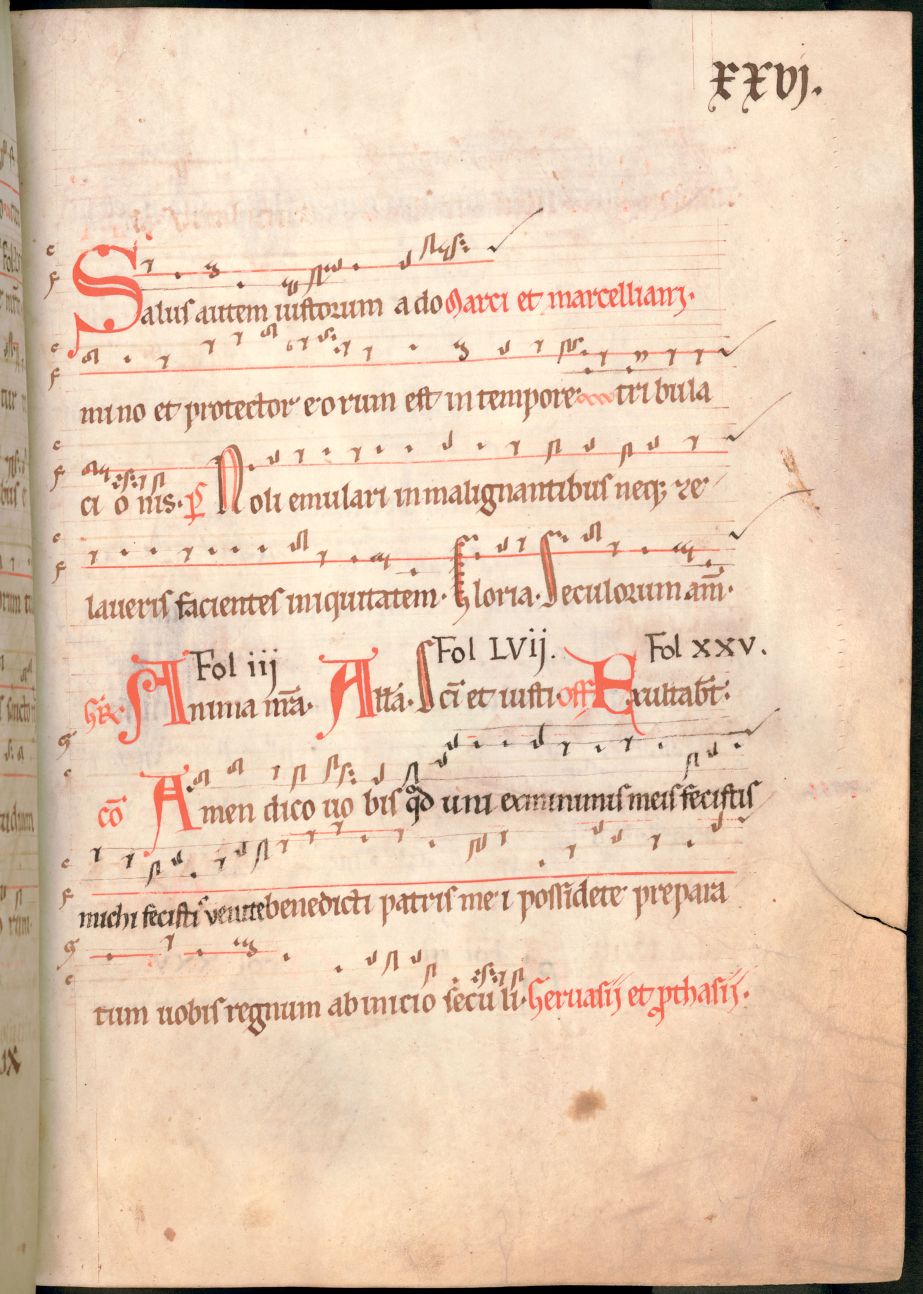 xxvj.
Salus autem iustorum a do Marci et marcelliani.
mino et protector eorum est in tempore tribula
ci o nis. ps Noli emulari in malignantibus neq; ze
laueris facientes iniquitatem. Gloria. Seculorum am̄.
Fol iij Fol LVij. Fol xxv.
Anima nr̄a. All̄a. Sc̄i et iusti. off Exultab̄t.
cō Amen dico uo bis qd uni ex minimis meis fecistis
michi fecistis venite benedicti patris me i possidete prepara
tum uobis regnum ab inicio secu li. Geruasij et ꝓthasij.